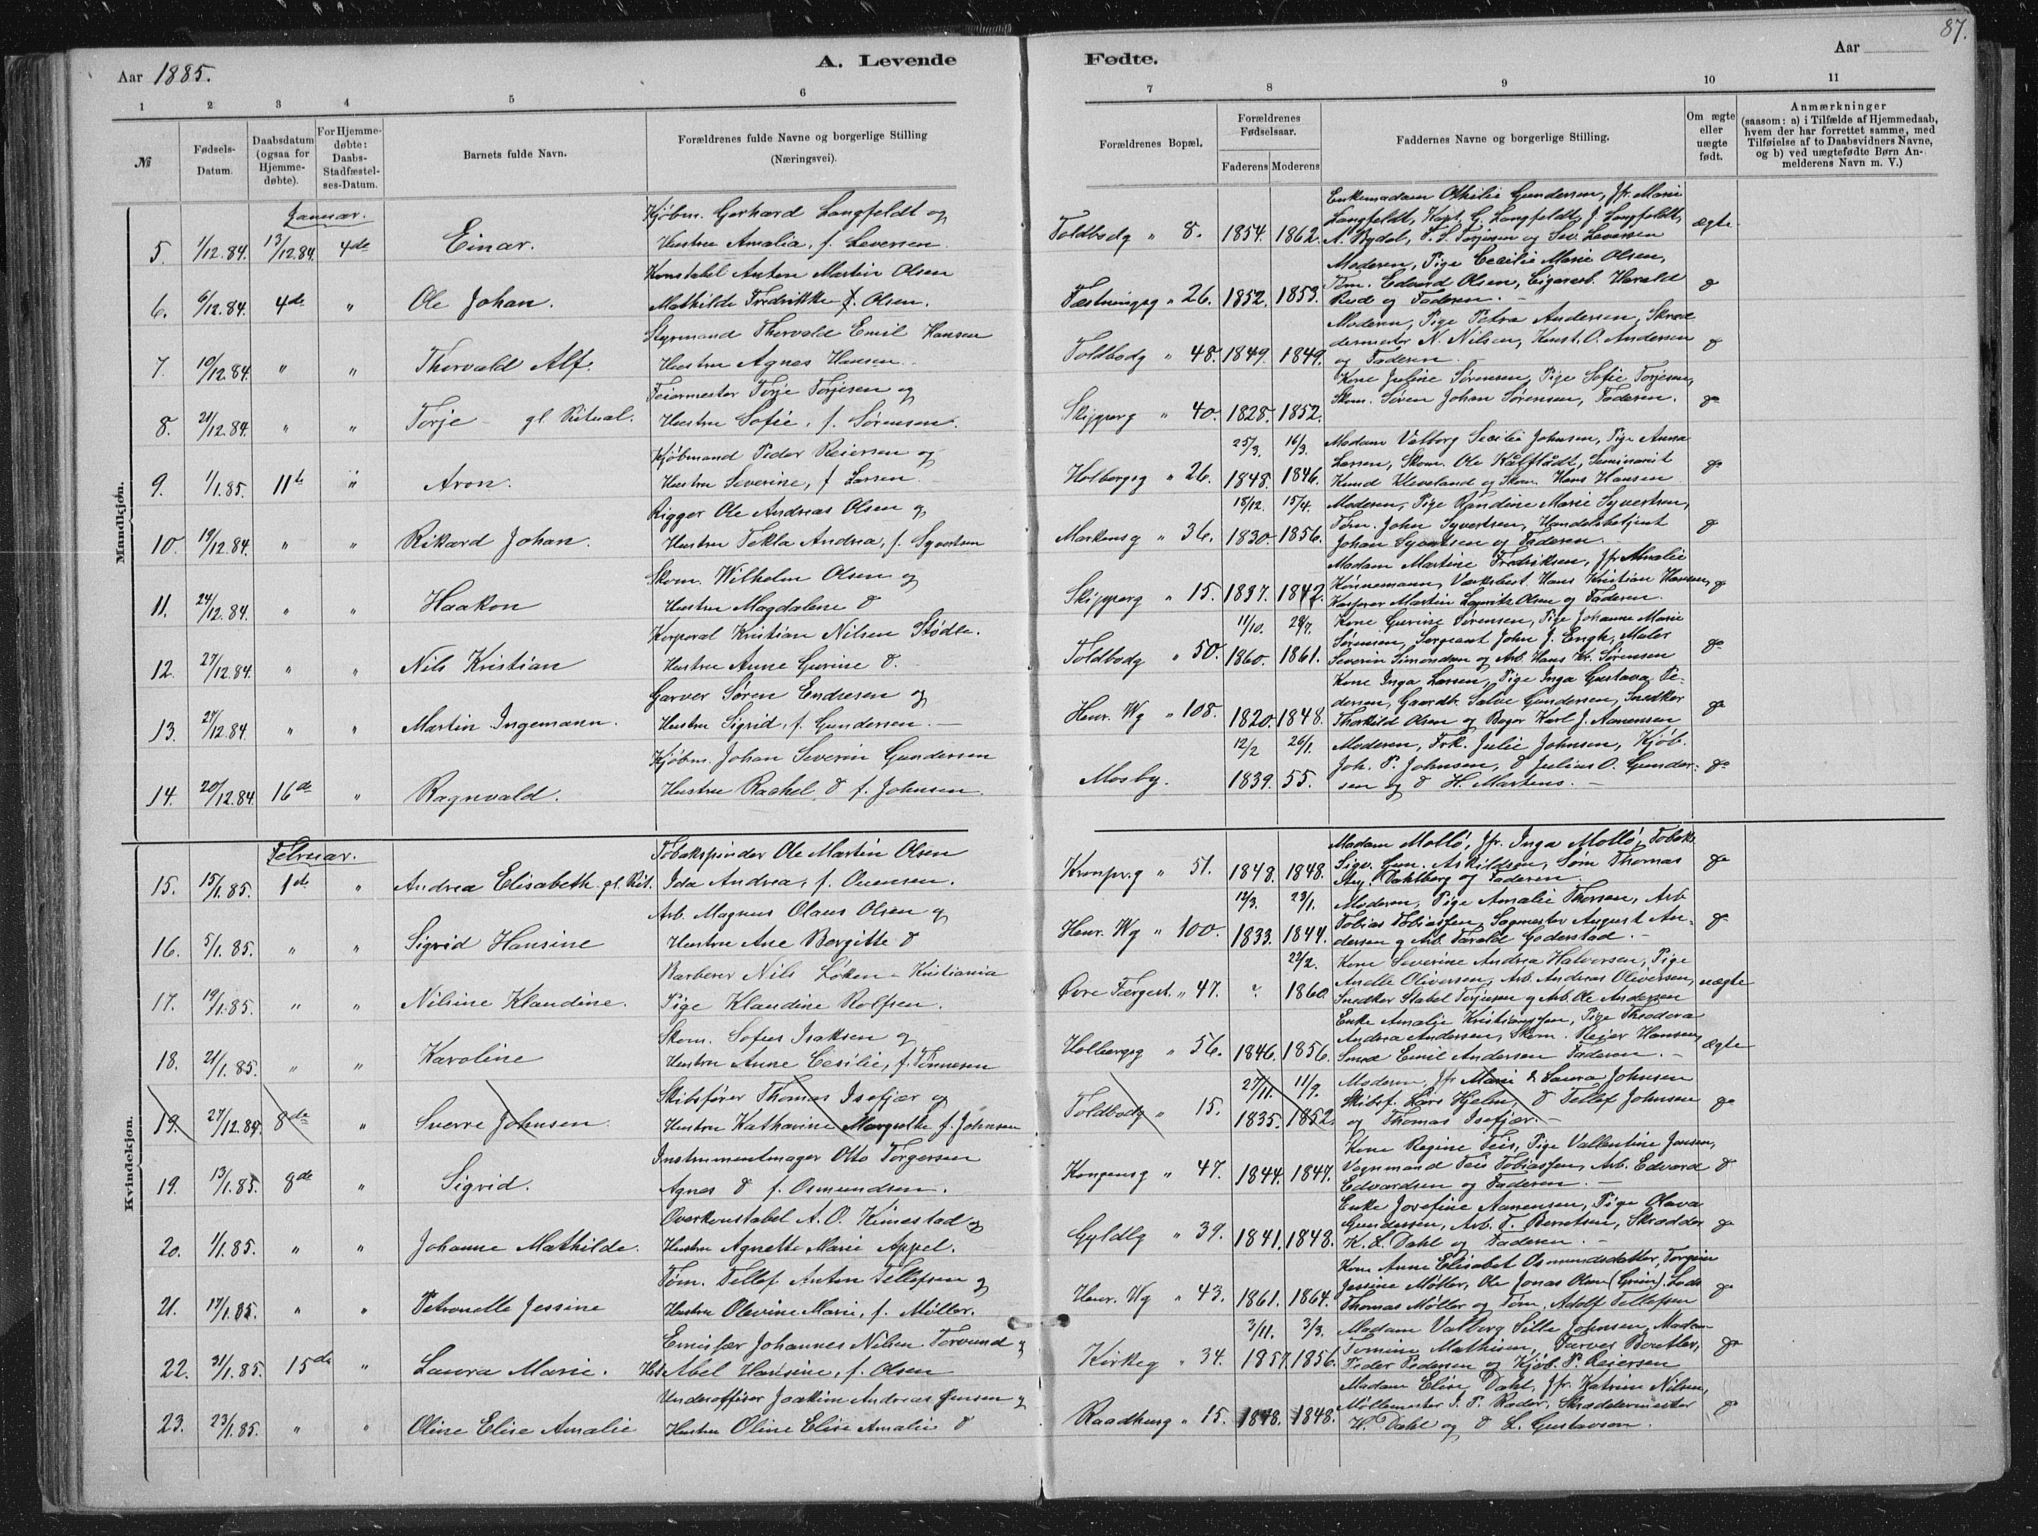 87.
Aar 1885.
A. Levende
Fødte.
Aar
1 2 3 4 5 6 7 8 9 10 11
№
Fødsels-Datum.
Daabsdatum (ogsaa for Hjemmedøbte).
For Hjemmedøbte: Daabs-Stadfæstelses-Datum.
Barnets fulde Navn.
Forældrenes fulde Navne og borgerlige Stilling (Næringsvei).
Forældrenes Bopæl.
Forældrenes Fødselsaar.
Faderens Moderens
Faddernes Navne og borgerlige Stilling.
Om ægte eller uægte født.
Anmærkninger (saasom: a) i Tilfælde af Hjemmedaab, hvem der har forrettet samme, med Tilføielse af to Daabsvidners Navne, og b) ved uægtefødte Børn Anmelderens Navn m. V.)
Mandkjøn.
Januar.
Kjøbm. Gerhard Langfeldt og
5. 1/12.84. 13/12.84. 4de Einar. Hustru Amalia, f. Leversen.
Toldbodg " 8. 1854. 1862.
Enkemadam Othilie Gundersen, Jfr. Marie
Langfeldt, Kapt. G. Langfeldt, J. Langfeldt,
A. Rydol, T. S. Torjesen og Sev. Leversen
ægte
Konstabel Anton Martin Olsen
6. 6/12.84. 4de " Ole Johan. Mathilde Fredrikke f. Olsen.
Fæstningsg " 26. 1852. 1853.
Moderen, Pige Cecilie Marie Olsen,
Tøm. Edvard Olsen, Cigararb. Harald
Rød og Faderen.
Styrmand Thorvald Emil Hansen
7. 10/12.84. " " Thorvald Alf. Hustru Agnes Hansen
Toldbodg " 48. 1849. 1849.
Moderen, Pige Petra Andersen, Skræd
dermester N. Nilsen, Konst. O. Andersen
og Faderen.
Feiermester Torje Torjesen og
8. 21/12.84. " " Torje – gl. Ritual. Hustru Sofie, f. Sørensen.
Skipperg " 40. 1828. 1852.
Kone Juline Sørensen, Pige Sofie Torjesen,
Skom. Søren Johan Sørensen, Faderen.
Kjøbmand Peder Reiersen og
9. 1/1.85. 11te " Aron. Hustru Severine, f Larsen
Holbergsg " 26. 25/3. 1848. 16/3. 1846.
Madam Valborg Secilie Johnsen, Pige Anna
Larsen, Skom. Ole Kålflådt, Seminarist
Knud Kleveland og Skm. Hans Hansen
Rigger Ole Andreas Olsen og
10. 19/12.84. " " Rikard Johan. Hustru Tekla Andrea, f. Syvertsen
Markensg " 36. 18/12. 1830. 15/4. 1856.
Moderen, Pige Randine Marie Syvertsen,
Tøm. John Syvertsen, Handelsbetjent
Johan Syvertsen og Faderen.
Skom. Wilhelm Olsen og
11. 24/12.84. " " Haakon Hustru Magdalene d
Skipperg " 15. 1837. 1842.
Madam Martine Fredriksen, Jfr Amalie
Könnemann, Værksbest. Hans Kristian Hansen,
Kasserer Martin Lauritz Olsen og Faderen.
Korporal Kristian Nilsen Stødle.
12. 27/12.84. " " Nils Kristian Hustru Anne Gurine d.
Toldbodg " 50. 11/10. 1860. 28/7. 1861.
Kone Gurine Sørensen, Pige Johanne Marie
Sørensen, Sergeant John J. Engh, Maler
Severin Simondsen og Arb. Hans Kr. Sørensen
Garver Søren Endresen og
13. 27/12.84. " " Martin Ingemann. Hustru Sigrid, f. Gundersen.
Henr. Wg " 108. 1820. 1848.
Kone Inga Larsen, Pige Inga Gustava Pe-
dersen, Gaardb. Salve Gundersen, Snedker
Thorkild Olsen og Bager Karl J. Aanensen
Kjøbm. Johan Severin Gundersen
14. 20/12.84 16de " Ragnvald. Hustru Rachel d f. Johnsen.
Mosby. 12/2 1839. 26/1. 55.
Moderen, Frk. Julie Johnsen, Kjøb.
Joh. P. Johnsen, d Julius O. Gunder-
sen og d H. Martens.
Kvindekjøn.
Februar.
Tobakspinder Ole Martin Olsen
15. 15/1.85. 1ste " Andrea Elisabeth gl. Rit. Ida Andrea, f. Ounsen.
Kronpr.g " 51. 1848. 1848.
Madam Mollø, Jfr. Inga Mollø, Tobaks
Sigv. Gun. Askildsen, Søm. Thomas
Stg. Dahlberg og Faderen.
Arb. Magnus Olaus Olsen og
16. 5/1.85. " " Sigrid Hansine Hustru Ane Bergitte d
Henr. Wg " 100. 12/3. 1833. 23/1. 1844.
Moderen, Pige Amalie Thorsen, Arb
Tobias Tobiassen, Sagmester August An-
dersen og Arb. Tarald Goderstad.
Barberer Nils Løken – Kristiania
17. 19/1.85. " " Nilsine Klaudine. Pige Klaudine Rolfsen.
Øvre Færgest. " 47. " 22/2. 1860.
Kone Severine Andrea Halvorsen, Pige
Anelle Oliversen, Arb. Andreas Oliversen,
Snedker Stabel Torjusen og Arb. Ole Andersen
uægte
Skom. Sofus Isaksen og
18. 21/1.85. " " Karoline Hustru Anne Cesilie, f. Tønnesen
Holbergsg " 56. 1846. 1856.
Enke Amalie Kristianssen, Pige Theodora
Andrea Andersen, Skom. Reier Hansen,
Smed Emil Andersen Faderen.
ægte
Skibsfører Thomas Isefjær og
19. 27/12.84. 8de Sverre Johnsen. Hustru Kathrine Margrethe f. Johnsen
Toldbodg " 15. 27/11 1835. 11/9. 1852.
Moderen, Jfr Marie & Laura Johnsen
Skibsf. Lars Hjelm, d Tellef Johnsen
og Thomas Isefjær.
Instrumentmager Otto Torgersen
19. 13/1.85. 8de " Sigrid. Agnes d f. Osmundsen.
Kongensg " 47. 1844. 1847.
Kone Regine Teis, Pige Vallentine Jensen,
Vognmand Teis Tobiassen, Arb. Edvard
Edvardsen og Faderen.
Overkonstabel A. O. Kimestad og
20. 1/1.85. " " Johanne Mathilde. Hustru Agnette Marie Appel.
Gyldlg " 39. 1841. 1848.
Enke Josefine Aanensen, Pige Olava
Gundersen, Arb. T. Berntsen, Skrædder
K. L. Dahl og Faderen.
Tøm. Tellef Anton Tellefsen og
21. 17/1.85. " " Petronelle Jessine Hustru Olevine Marie, f. Møller.
Henr. Wg " 43. 1861. 1864.
Kone Anne Elisabet Osmundsdatter, Torgine
Jessine Møller, Ole Jonas Olsen (Grim), Lods
Thomas Møller og Tøm. Adolf Tellefsen
Emisfær Johannes Nilsen Torvund og
22. 31/1.85. 15de " Laura Marie. Hst Abel Hansine, f. Olsen
Kirkeg " 34. 3/11. 1857. 3/3. 1856.
Madam Valborg Sille Johnsen, Madam
Tomine Mathisen, Farver Bentler,
Peder Pedersen og Kjøb. P. Reiersen
Underofficer Joakim Andreas Jensen og
23. 23/1.85. " " Oline Elise Amalie Hustru Oline Elise Amalie d
Raadhusg " 15. 1848. 1848.
Madam Elise Dahl, Jfr. Katrine Nilsen,
Møllemester I. P. Røder, Skræddermester
H. Dahl og d L. Gustavson.